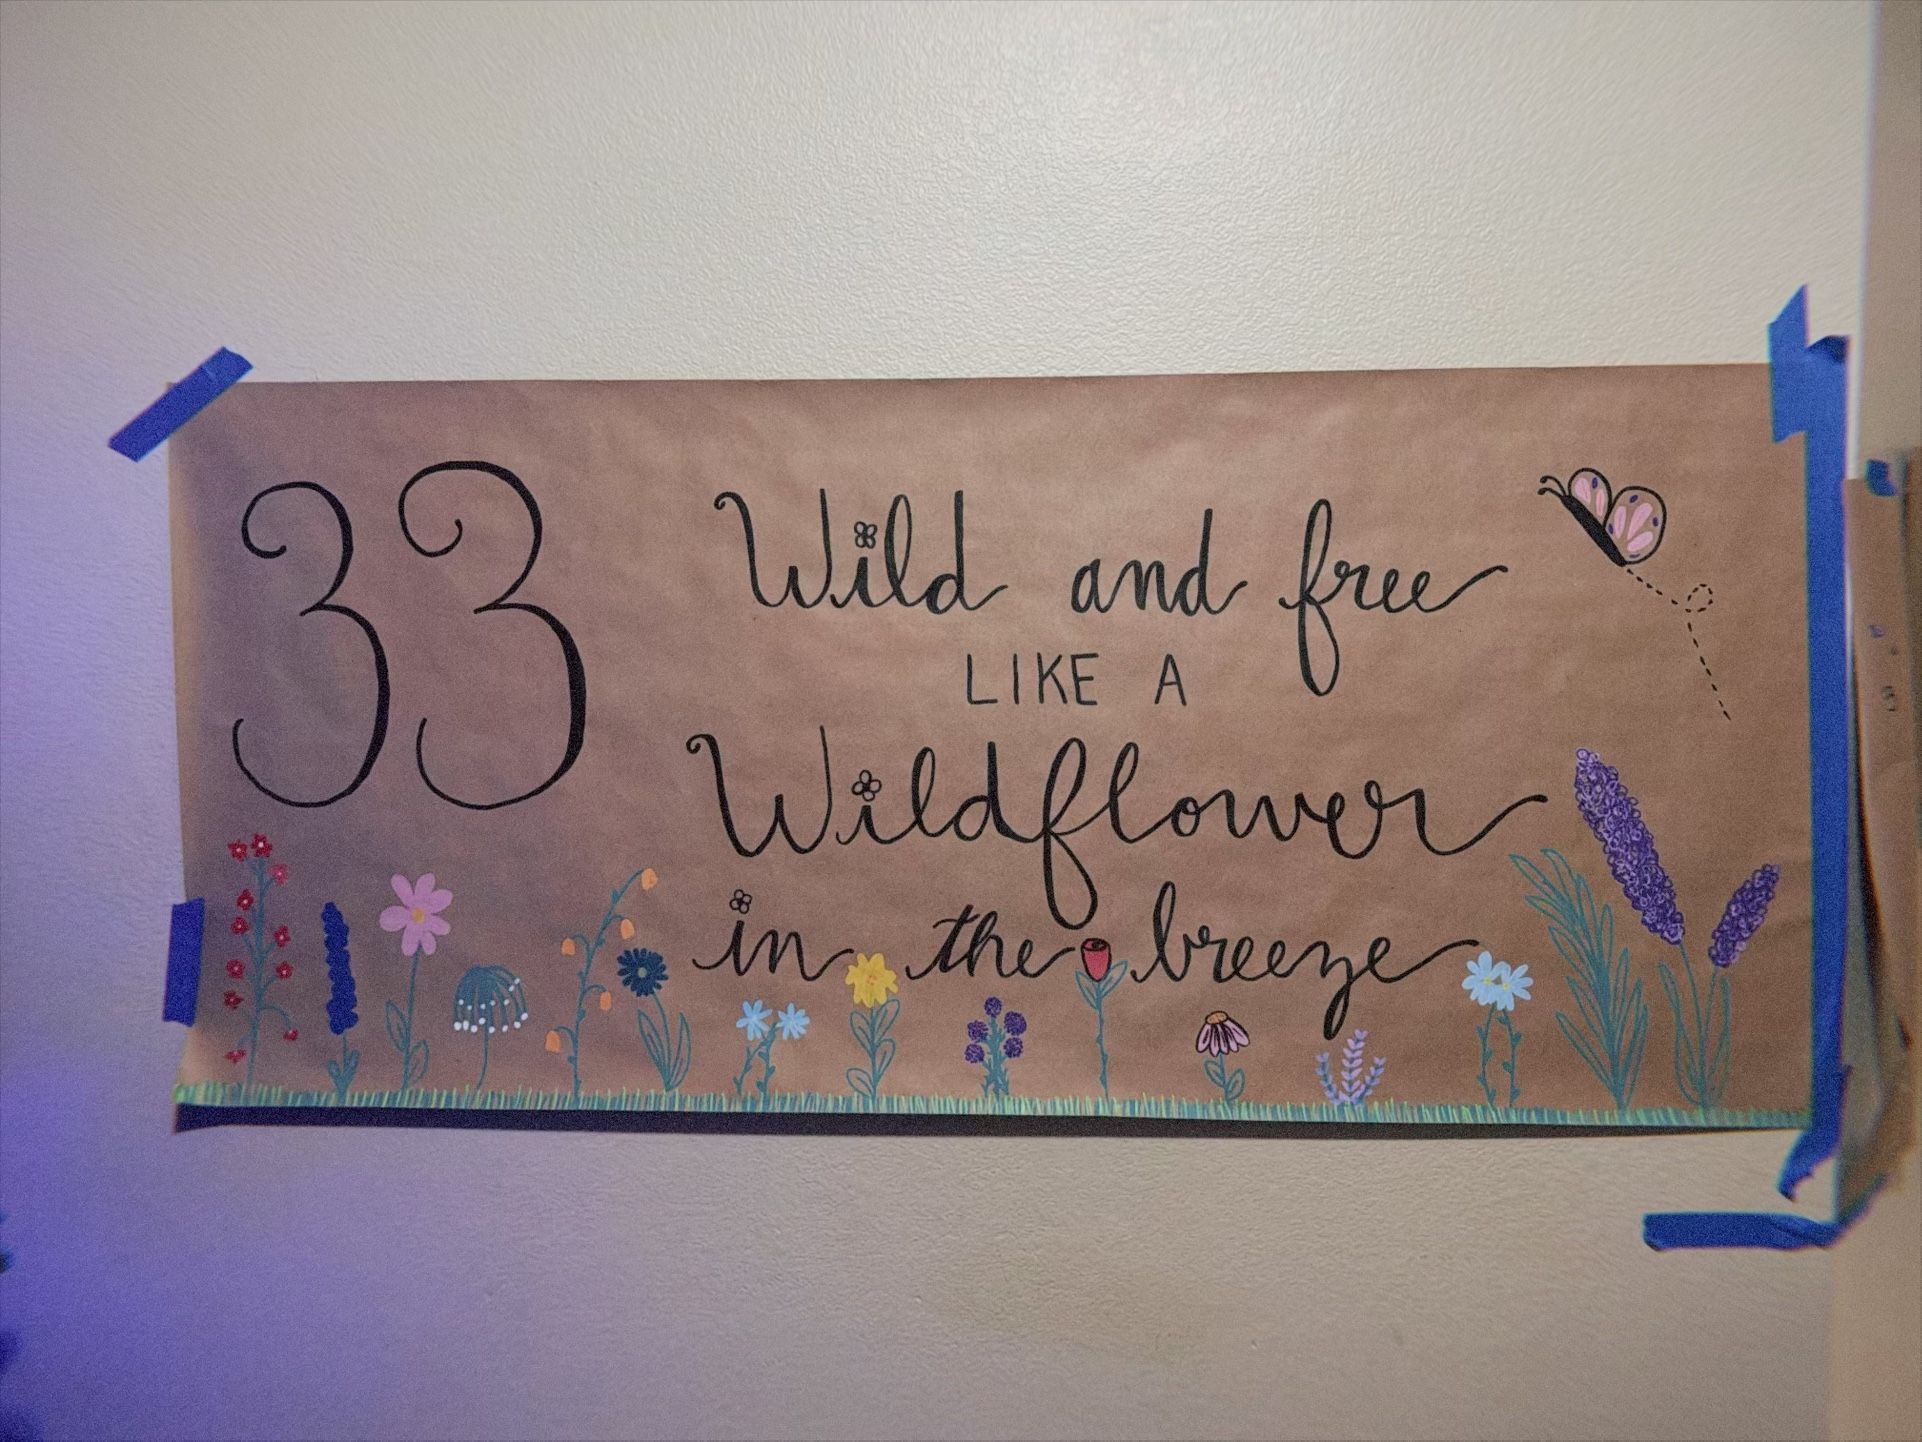 33
Wild and free
LIKE A
Wildflower
in the breeze